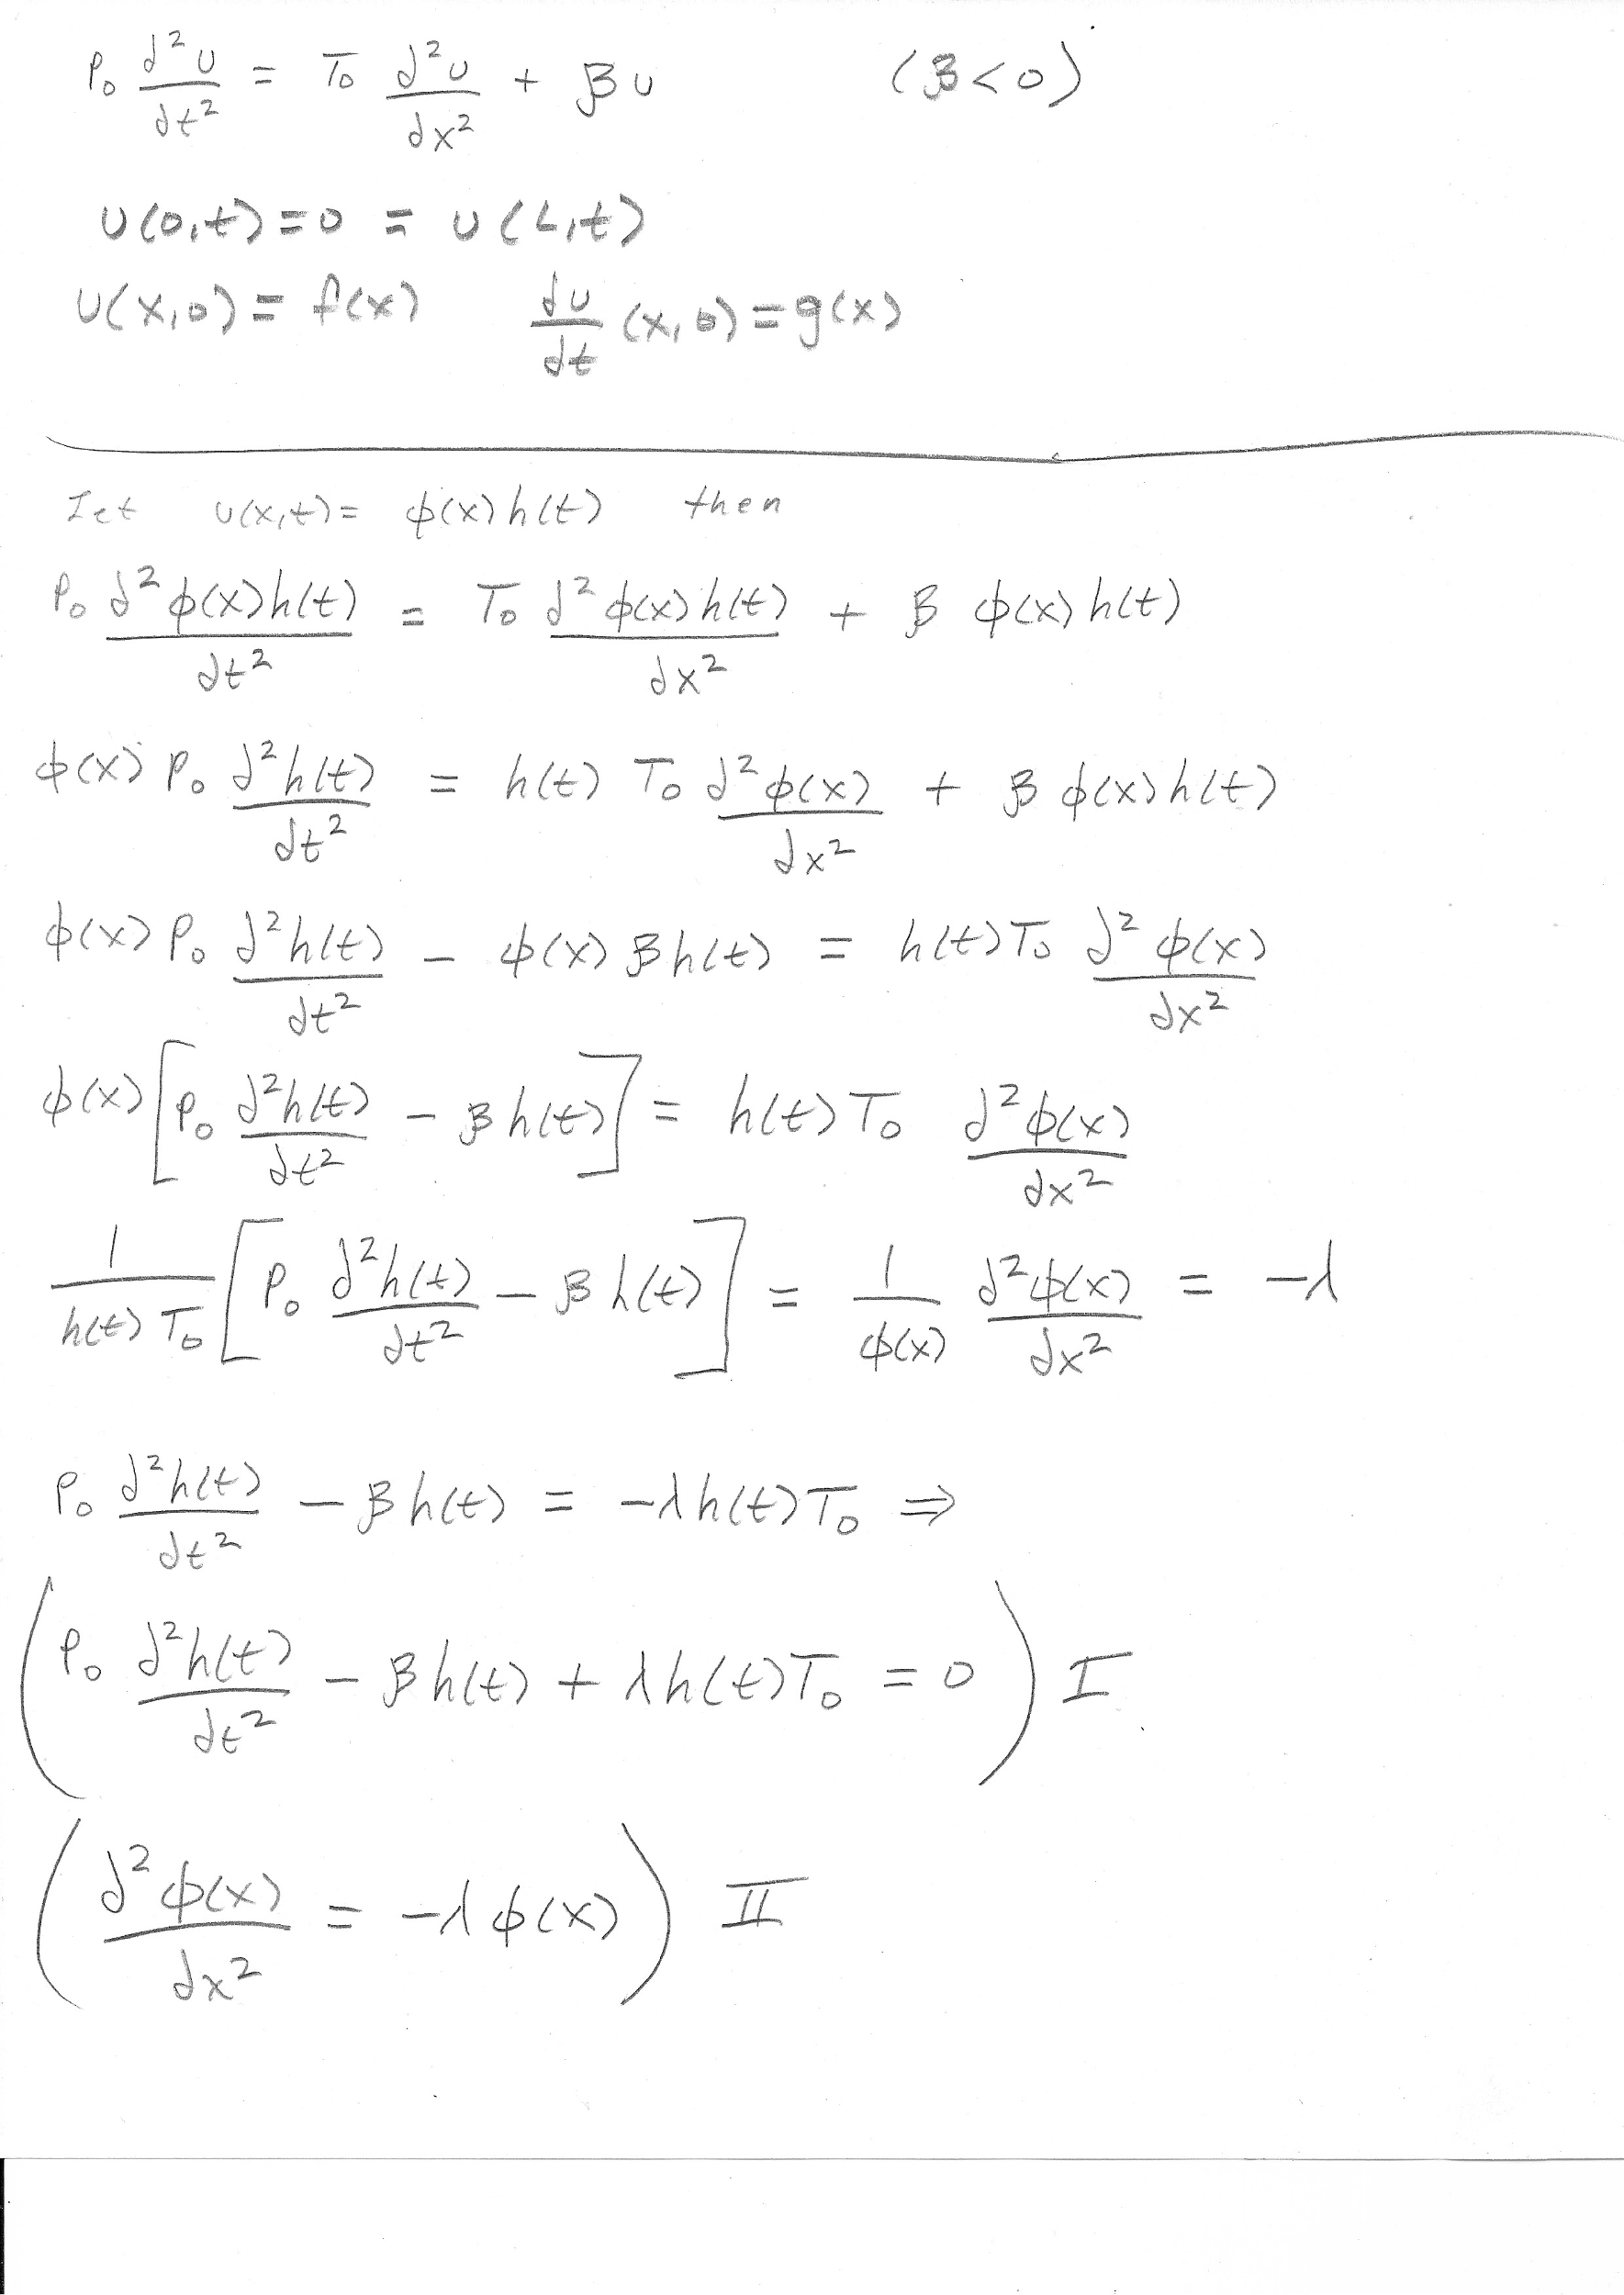 ρ₀ ∂²u/∂t² = T₀ ∂²u/∂x² + βu (β<0)
u(0,t)=0 = u(L,t)
u(x,0)= f(x) ∂u/∂t (x,0)=g(x)
Let u(x,t)= ϕ(x)h(t) then
ρ₀ ∂²ϕ(x)h(t)/∂t² = T₀ ∂²ϕ(x)h(t)/∂x² + β ϕ(x)h(t)
ϕ(x) ρ₀ ∂²h(t)/∂t² = h(t) T₀ ∂²ϕ(x)/∂x² + β ϕ(x)h(t)
ϕ(x) ρ₀ ∂²h(t)/∂t² − ϕ(x) β h(t) = h(t) T₀ ∂²ϕ(x)/∂x²
ϕ(x)[ρ₀ ∂²h(t)/∂t² − β h(t)] = h(t) T₀ ∂²ϕ(x)/∂x²
1/(h(t) T₀) [ρ₀ ∂²h(t)/∂t² − β h(t)] = 1/ϕ(x) ∂²ϕ(x)/∂x² = −λ
ρ₀ ∂²h(t)/∂t² − β h(t) = −λ h(t) T₀ ⇒
(ρ₀ ∂²h(t)/∂t² − β h(t) + λ h(t) T₀ = 0) I
(∂²ϕ(x)/∂x² = −λ ϕ(x)) II